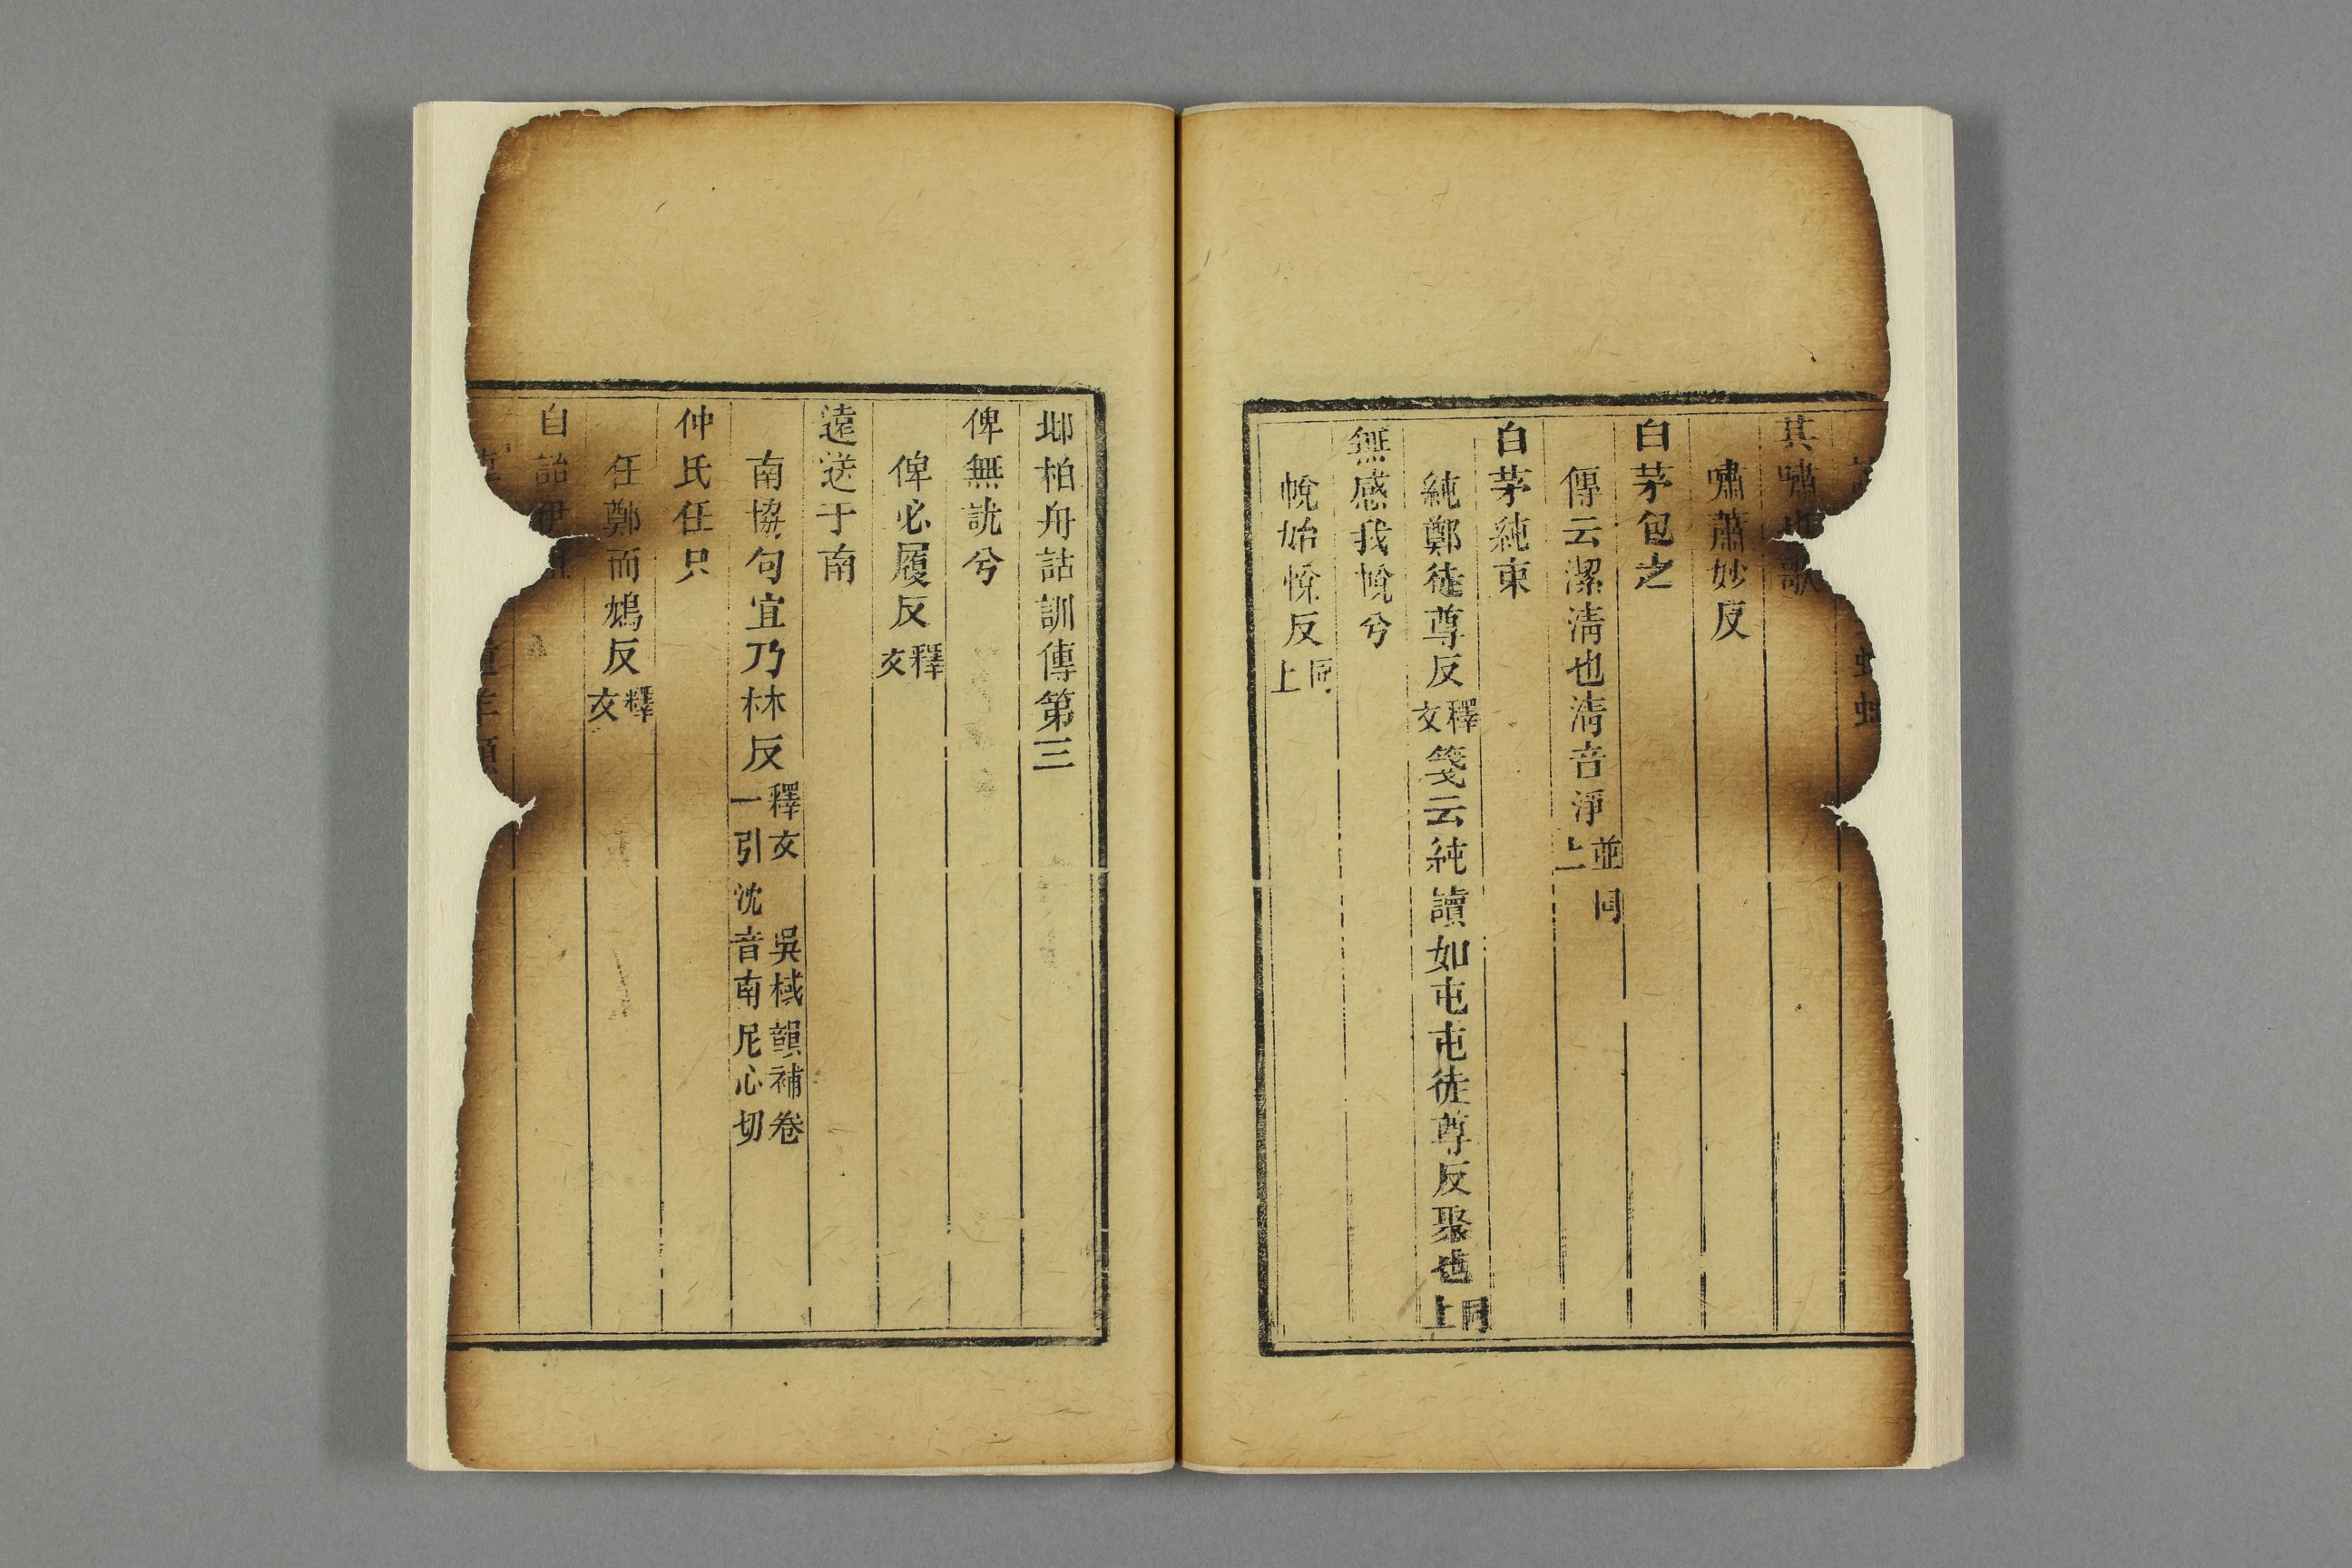 其嘯也歌
嘯蕭妙反
白茅包之
傳云潔淸也淸音淨並同上
白茅純束
純鄭徒尊反釋文箋云純讀如屯屯徒尊反聚也同上
無感我帨兮
帨始悅反同上
邶柏舟詁訓傳第三
俾無訧兮
俾必履反釋文
遠送于南
南協句宜乃林反釋文 吳棫韻補卷一引沈音南尼心切
仲氏任只
任鄭而鴆反釋文
自詒伊